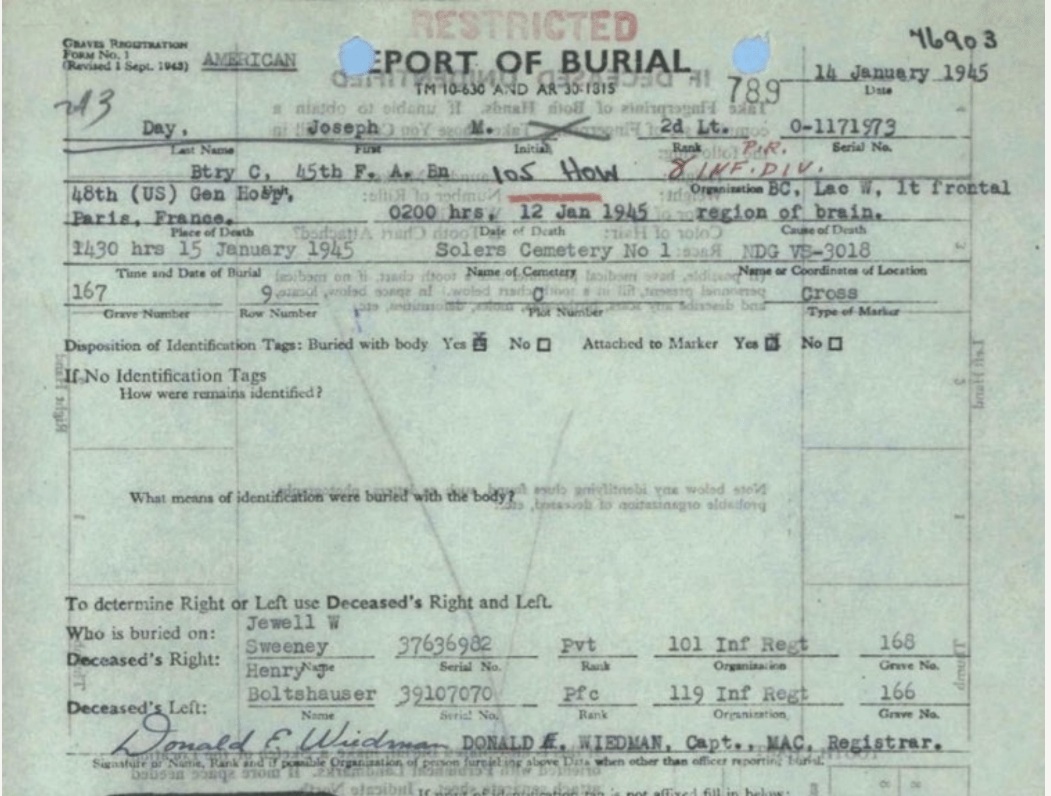 RESTRICTED
76903
GRAVES REGISTRATION
FORM No. 1
(Revised 1 Sept. 1943)
AMERICAN
EPORT OF BURIAL
TM 10-630 AND AR 30-1815
789
14 January 1945
Date
Day, Joseph M. 2d Lt. O-1171973
Last Name First Initial Rank Serial No.
Btry C, 45th F. A. Bn 105 HOW 8 INF. DIV.
48th (US) Gen Hosp, Organization BC, Lac W, lt frontal
Paris, France. 0200 hrs, 12 Jan 1945 region of brain.
Place of Death Date of Death Cause of Death
1430 hrs 15 January 1945 Solers Cemetery No 1 NDG VS-3018
Time and Date of Burial Name of Cemetery Name or Coordinates of Location
167 9 C Cross
Grave Number Row Number Plot Number Type of Marker
Disposition of Identification Tags: Buried with body Yes No Attached to Marker Yes No
If No Identification Tags
How were remains identified?
What means of identification were buried with the body?
To determine Right or Left use Deceased's Right and Left.
Who is buried on:
Deceased's Right:
Jewell W
Sweeney 37636982 Pvt 101 Inf Regt 168
Name Serial No. Rank Organization Grave No.
Deceased's Left:
Henry
Boltshauser 39107070 Pfc 119 Inf Regt 166
Name Serial No. Rank Organization Grave No.
Donald E. Wiedman DONALD E. WIEDMAN, Capt., MAC, Registrar.
Signature or Name, Rank and if possible Organization of person furnishing above Data when other than officer reporting burial.